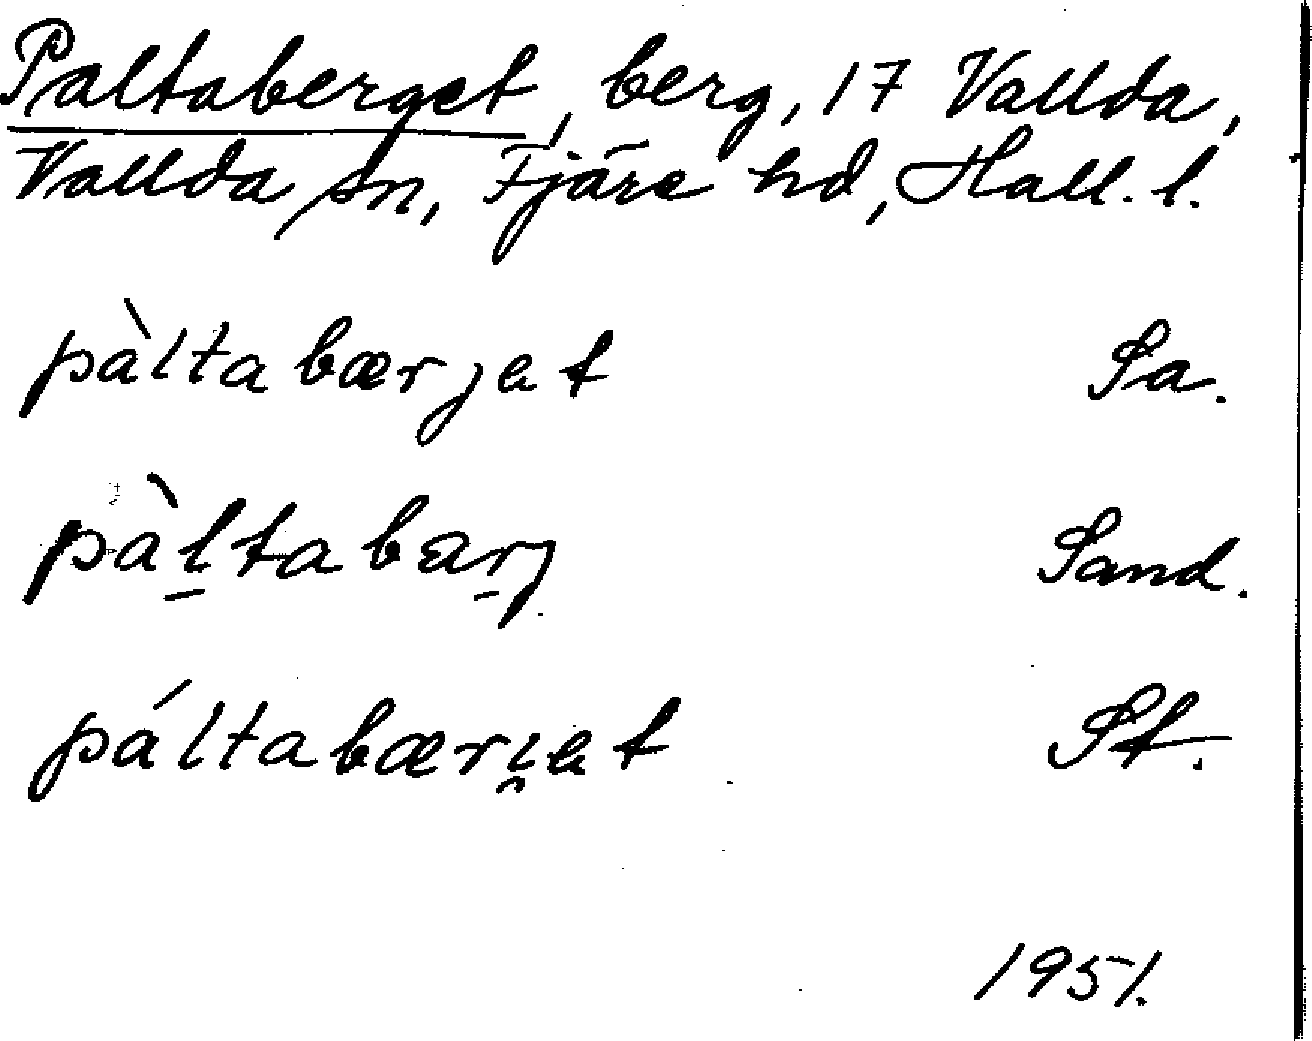 Paltaberget, berg, 17 Vallda,
Vallda sn, Fjäre hd, Hall. l.
pàltabærjet Sa.
pàl̠tabær̠j Sand.
páltabæri̯et St.
1951.